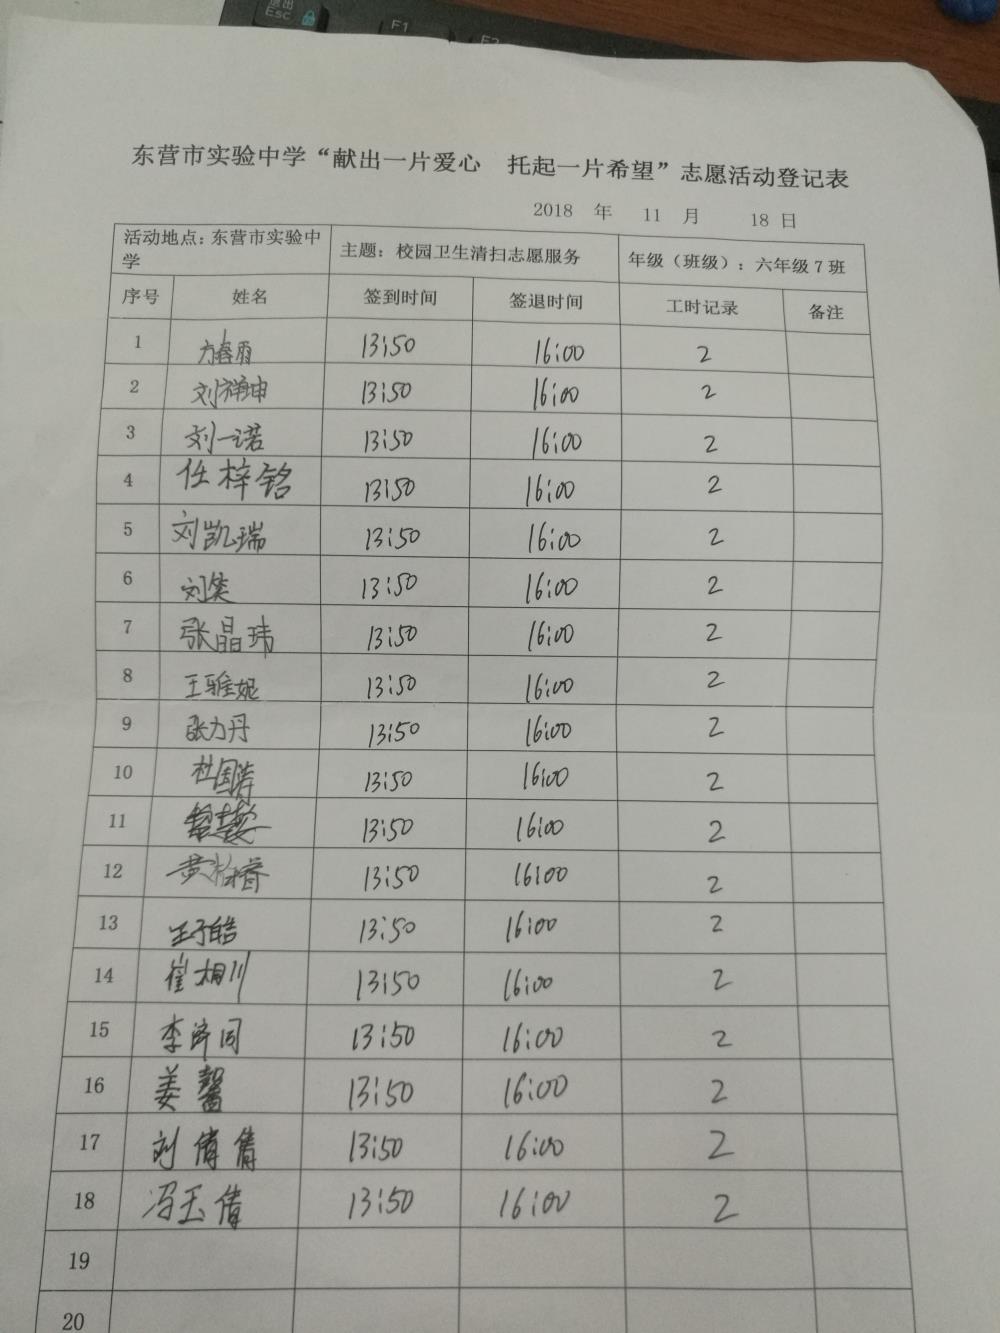 东营市实验中学“献出一片爱心 托起一片希望”志愿活动登记表
2018 年 11 月 18 日
活动地点：东营市实验中学 主题：校园卫生清扫志愿服务 年级（班级）：六年级7班
序号 姓名 签到时间 签退时间 工时记录 备注
1 方春雨 13:50 16:00 2
2 刘祥坤 13:50 16:00 2
3 刘一诺 13:50 16:00 2
4 任梓铭 13:50 16:00 2
5 刘凯瑞 13:50 16:00 2
6 刘笑 13:50 16:00 2
7 张晶玮 13:50 16:00 2
8 王雅妮 13:50 16:00 2
9 张力丹 13:50 16:00 2
10 杜国涛 13:50 16:00 2
11 13:50 16:00 2
12 黄柏睿 13:50 16:00 2
13 王子皓 13:50 16:00 2
14 崔相川 13:50 16:00 2
15 李济同 13:50 16:00 2
16 姜馨 13:50 16:00 2
17 刘倩倩 13:50 16:00 2
18 冯玉倩 13:50 16:00 2
19
20
Esc
F1
F2